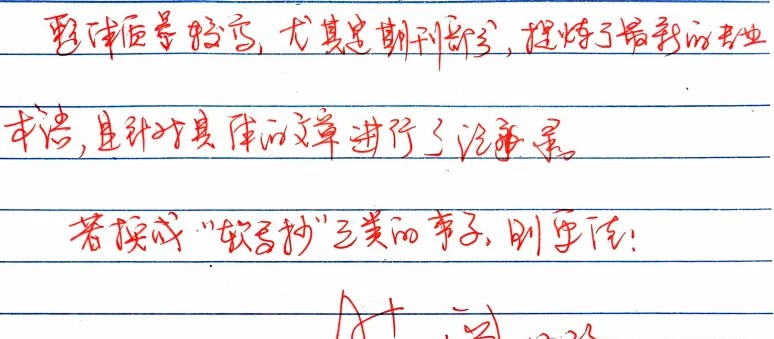 整体质量较高,尤其是期刊部分,提炼了最新的专业
术语,且针对具体的文章进行了注录。
若换成“软写抄”之类的本子,则更佳!